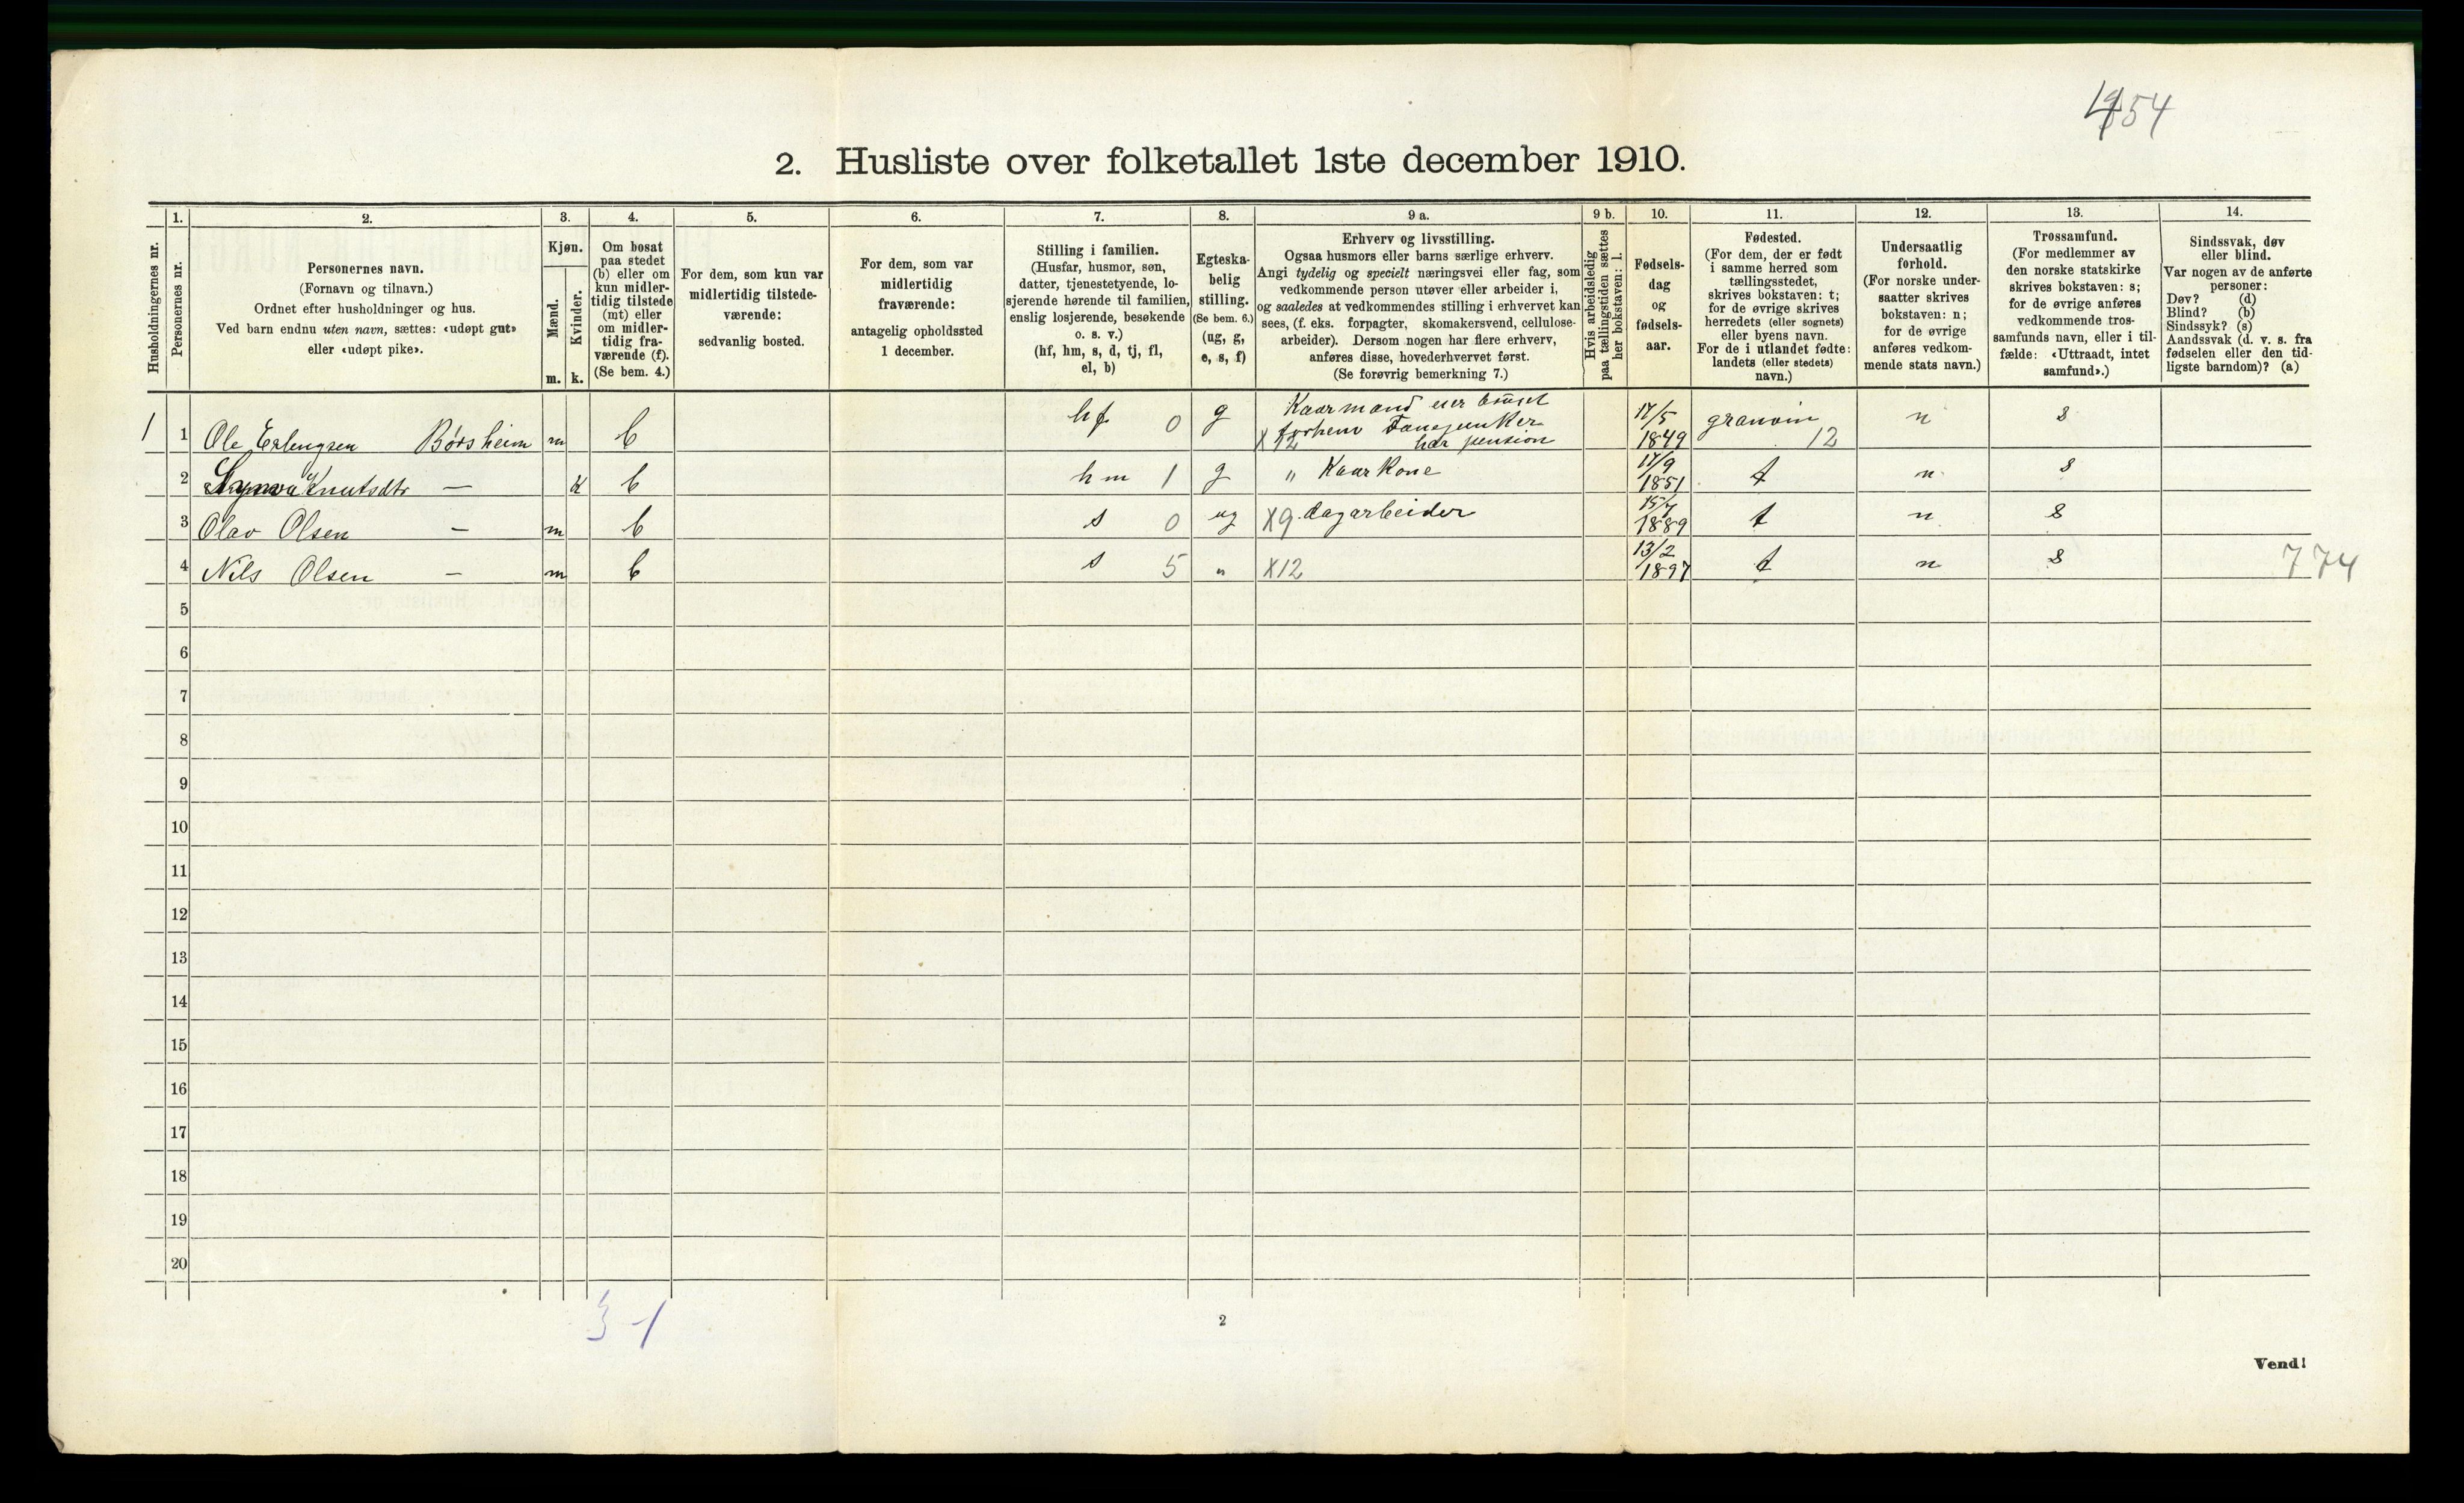 454
2. Husliste over folketallet 1ste december 1910.
Husholdningernes nr.
1.
Personernes nr.
2.
Personernes navn.
(Fornavn og tilnavn.)
Ordnet efter husholdninger og hus.
Ved barn endnu uten navn, sættes: «udøpt gut»
eller «udøpt pike».
3.
Kjøn.
Mænd.
Kvinder.
m. k.
4.
Om bosat
paa stedet
(b) eller om
kun midler-
tidig tilstede
(mt) eller
om midler-
tidig fra-
værende (f).
(Se bem. 4.)
5.
For dem, som kun var
midlertidig tilstede-
værende:
sedvanlig bosted.
6.
For dem, som var
midlertidig
fraværende:
antagelig opholdssted
1 december.
7.
Stilling i familien.
(Husfar, husmor, søn,
datter, tjenestetyende, lo-
sjerende hørende til familien,
enslig losjerende, besøkende
o. s. v.)
(hf, hm, s, d, tj, fl,
el, b)
8.
Egteska-
belig
stilling.
(Se bem. 6.)
(ug, g,
e, s, f)
9 a.
Erhverv og livsstilling.
Ogsaa husmors eller barns særlige erhverv.
Angi tydelig og specielt næringsvei eller fag, som
vedkommende person utøver eller arbeider i,
og saaledes at vedkommendes stilling i erhvervet kan
sees, (f. eks. forpagter, skomakersvend, cellulose-
arbeider). Dersom nogen har flere erhverv,
anføres disse, hovederhvervet først.
(Se forøvrig bemerkning 7.)
9 b.
Hvis arbeidsledig
paa tællingstiden sættes
her bokstaven: l.
10.
Fødsels-
dag
og
fødsels-
aar.
11.
Fødested.
(For dem, der er født
i samme herred som
tællingsstedet,
skrives bokstaven: t;
for de øvrige skrives
herredets (eller sognets)
eller byens navn.
For de i utlandet fødte:
landets (eller stedets)
navn.)
12.
Undersaatlig
forhold.
(For norske under-
saatter skrives
bokstaven: n;
for de øvrige
anføres vedkom-
mende stats navn.)
13.
Trossamfund.
(For medlemmer av
den norske statskirke
skrives bokstaven: s;
for de øvrige anføres
vedkommende tros-
samfunds navn, eller i til-
fælde: «Uttraadt, intet
samfund».)
14.
Sindssvak, døv
eller blind.
Var nogen av de anførte
personer:
Døv? (d)
Blind? (b)
Sindssyk? (s)
Aandssvak (d. v. s. fra
fødselen eller den tid-
ligste barndom)? (a)
1 1 Ole Erlengsen Børsheim m b hf 0 g Kaarmand eier bruset
forhenv Fanejunker
X12 har pension 17/5 1849 granvin 12 n s
2 Synva Knutsdtr — k b hm 1 g " Kaarkone 17/9 1851 t n s
3 Olav Olsen — m b s 0 ug X9 dagarbeider 15/7 1889 t n s
4 Nils Olsen — m b s 5 " X12 13/2 1897 t n s 774
5
6
7
8
9
10
11
12
13
14
15
16
17
18
19
20
3-1
2
Vend!